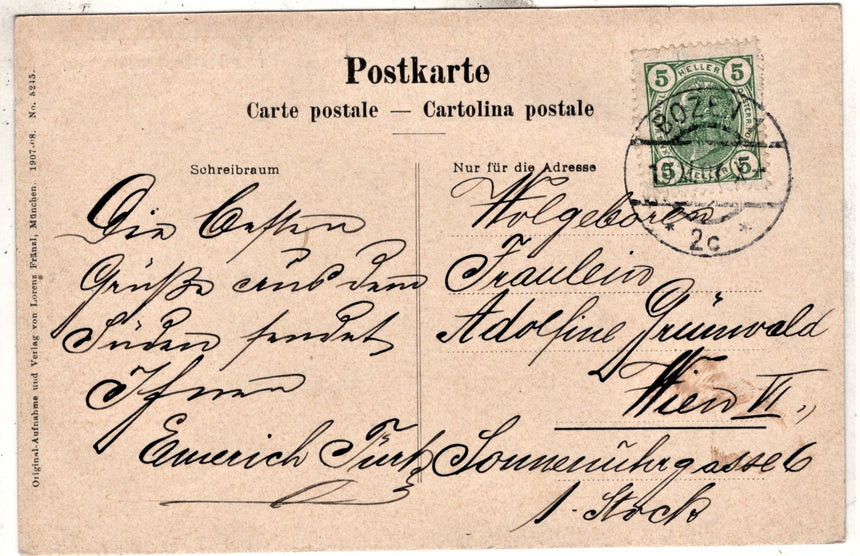 Postkarte
Carte postale — Cartolina postale
Schreibraum
Nur für die Adresse
Die besten
Grüße aus dem
Süden sendet
Ihnen
Emerich Türk
Wolgeboren
Fräulein
Adolfine Grünwald
Wien VI.,
Sonnenuhrgasse 6
1. Stock
5 HELLER 5
5 HELLER 5
BOZEN
* 2c *
Original-Aufnahme und Verlag von Lorenz Fränzl, München. 1907-08. No. 5245.